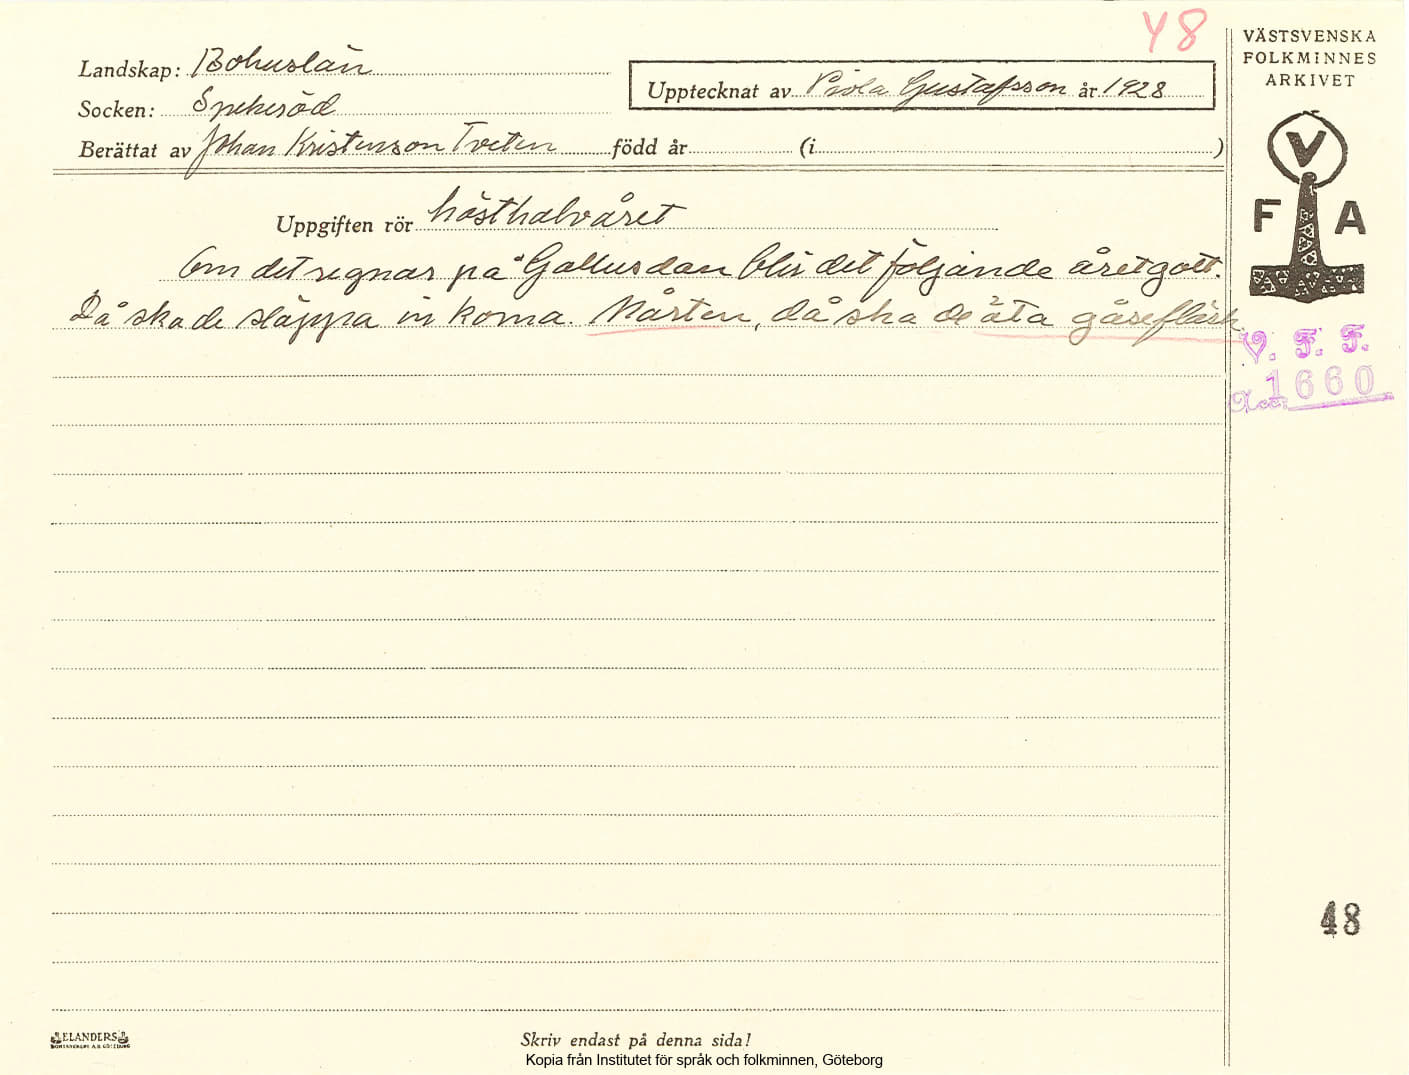 48
VÄSTSVENSKA
FOLKMINNES
ARKIVET
Landskap: Bohuslän
Upptecknat av Viola Gustafsson år 1928
Socken: Spekeröd
Berättat av Johan Kristenson Tveten född år (i )
V
F A
Uppgiften rör hösthalvåret
Om det regnar på Gallusdan blir det följande året gott.
Då ska de släppa in korna. Mårten, då ska de äta gåsefläsk.
V. F. F.
Acc. 1660
48
ELANDERS
Skriv endast på denna sida!
Kopia från Institutet för språk och folkminnen, Göteborg